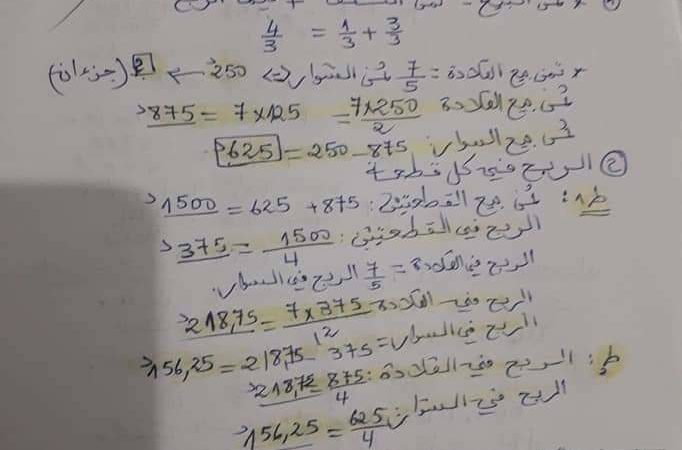 ثمن البيع = ثمن
4/3 = 1/3 + 3/3
* ثمن بيع القلادة = 7/5 ثمن السوار <=> 250د ← 2 (جزءان)
ثمن بيع القلادة 7x250/2 = 7x125 = 875د
ثمن بيع السوار: 875 - 250 = 625د
② الربح في كل قطعة
ط1: ثمن بيع القطعتين: 875 + 625 = 1500د
الربح في القطعتين: 1500/4 = 375د
الربح في القلادة = 7/5 الربح في السوار.
الربح في القلادة 7x375/12 = 218,75د
الربح في السوار = 375 - 218,75 = 156,25د
ط2: الربح في القلادة: 875/4 = 218,75د
الربح في السوار: 625/4 = 156,25د